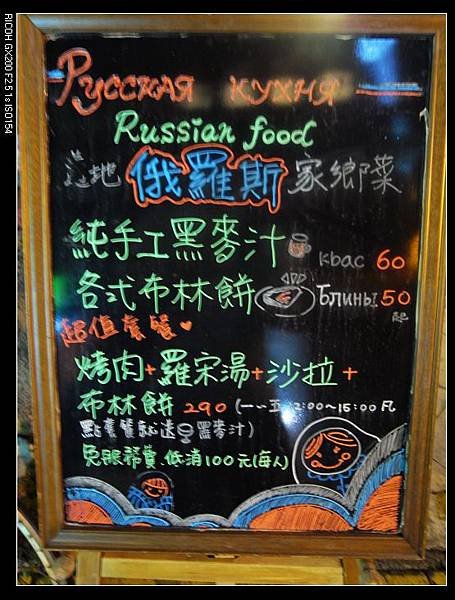 Русская кухня
Russian food
道地 俄羅斯 家鄉菜
純手工黑麥汁 квас 60
各式布林餅 Блины 50
起
超值套餐
烤肉+羅宋湯+沙拉+
布林餅 290 (一~五 12:00~15:00 凡
點套餐就送 黑麥汁)
免服務費、低消100元(每人)
RICOH GX200 F2.5 1s ISO154